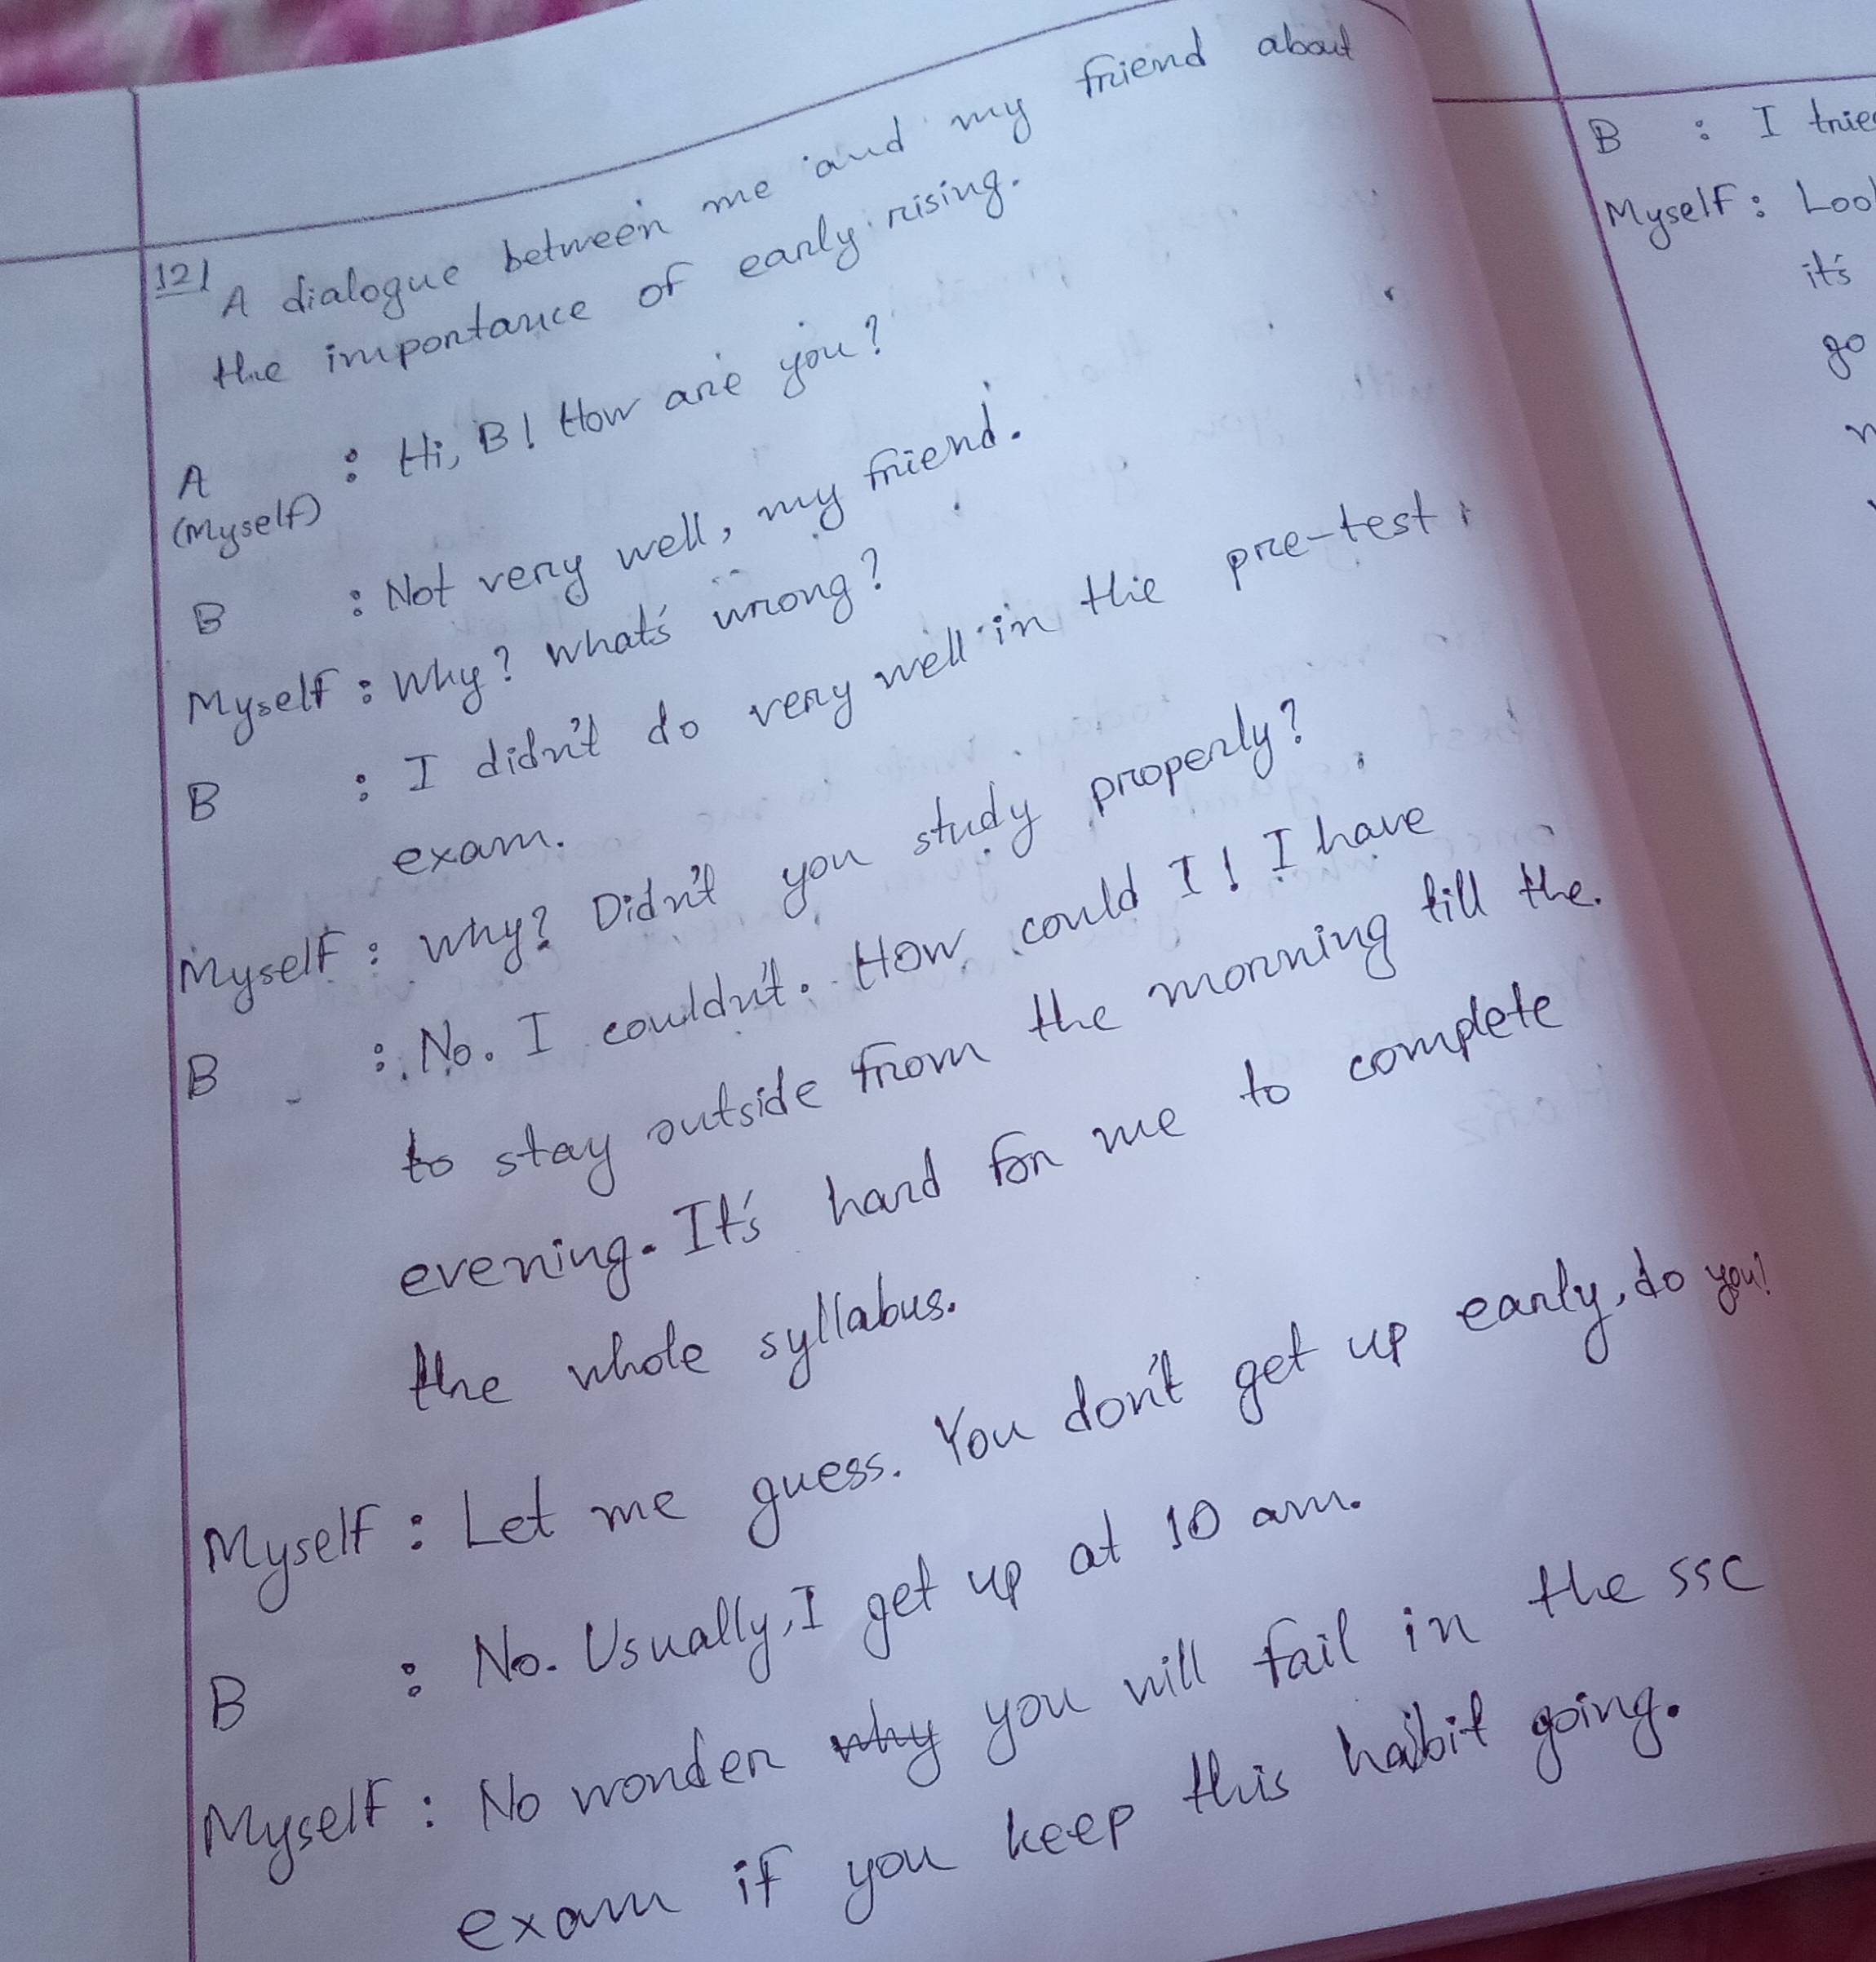 12/ A dialogue between me and my friend about
the importance of early rising.
A (Myself) : Hi, B! How are you?
B : Not very well, my friend.
Myself : Why? What's wrong?
B : I didn't do very well in the pre-test
exam.
Myself : Why? Didn't you study properly?
B : No. I couldn't. How could I! I have
to stay outside from the morning till the
evening. It's hard for me to complete
the whole syllabus.
Myself : Let me guess. You don't get up early, do you?
B : No. Usually, I get up at 10 am.
Myself : No wonder why you will fail in the SSC
exam if you keep this habit going.
B : I
Myself :
it's
go